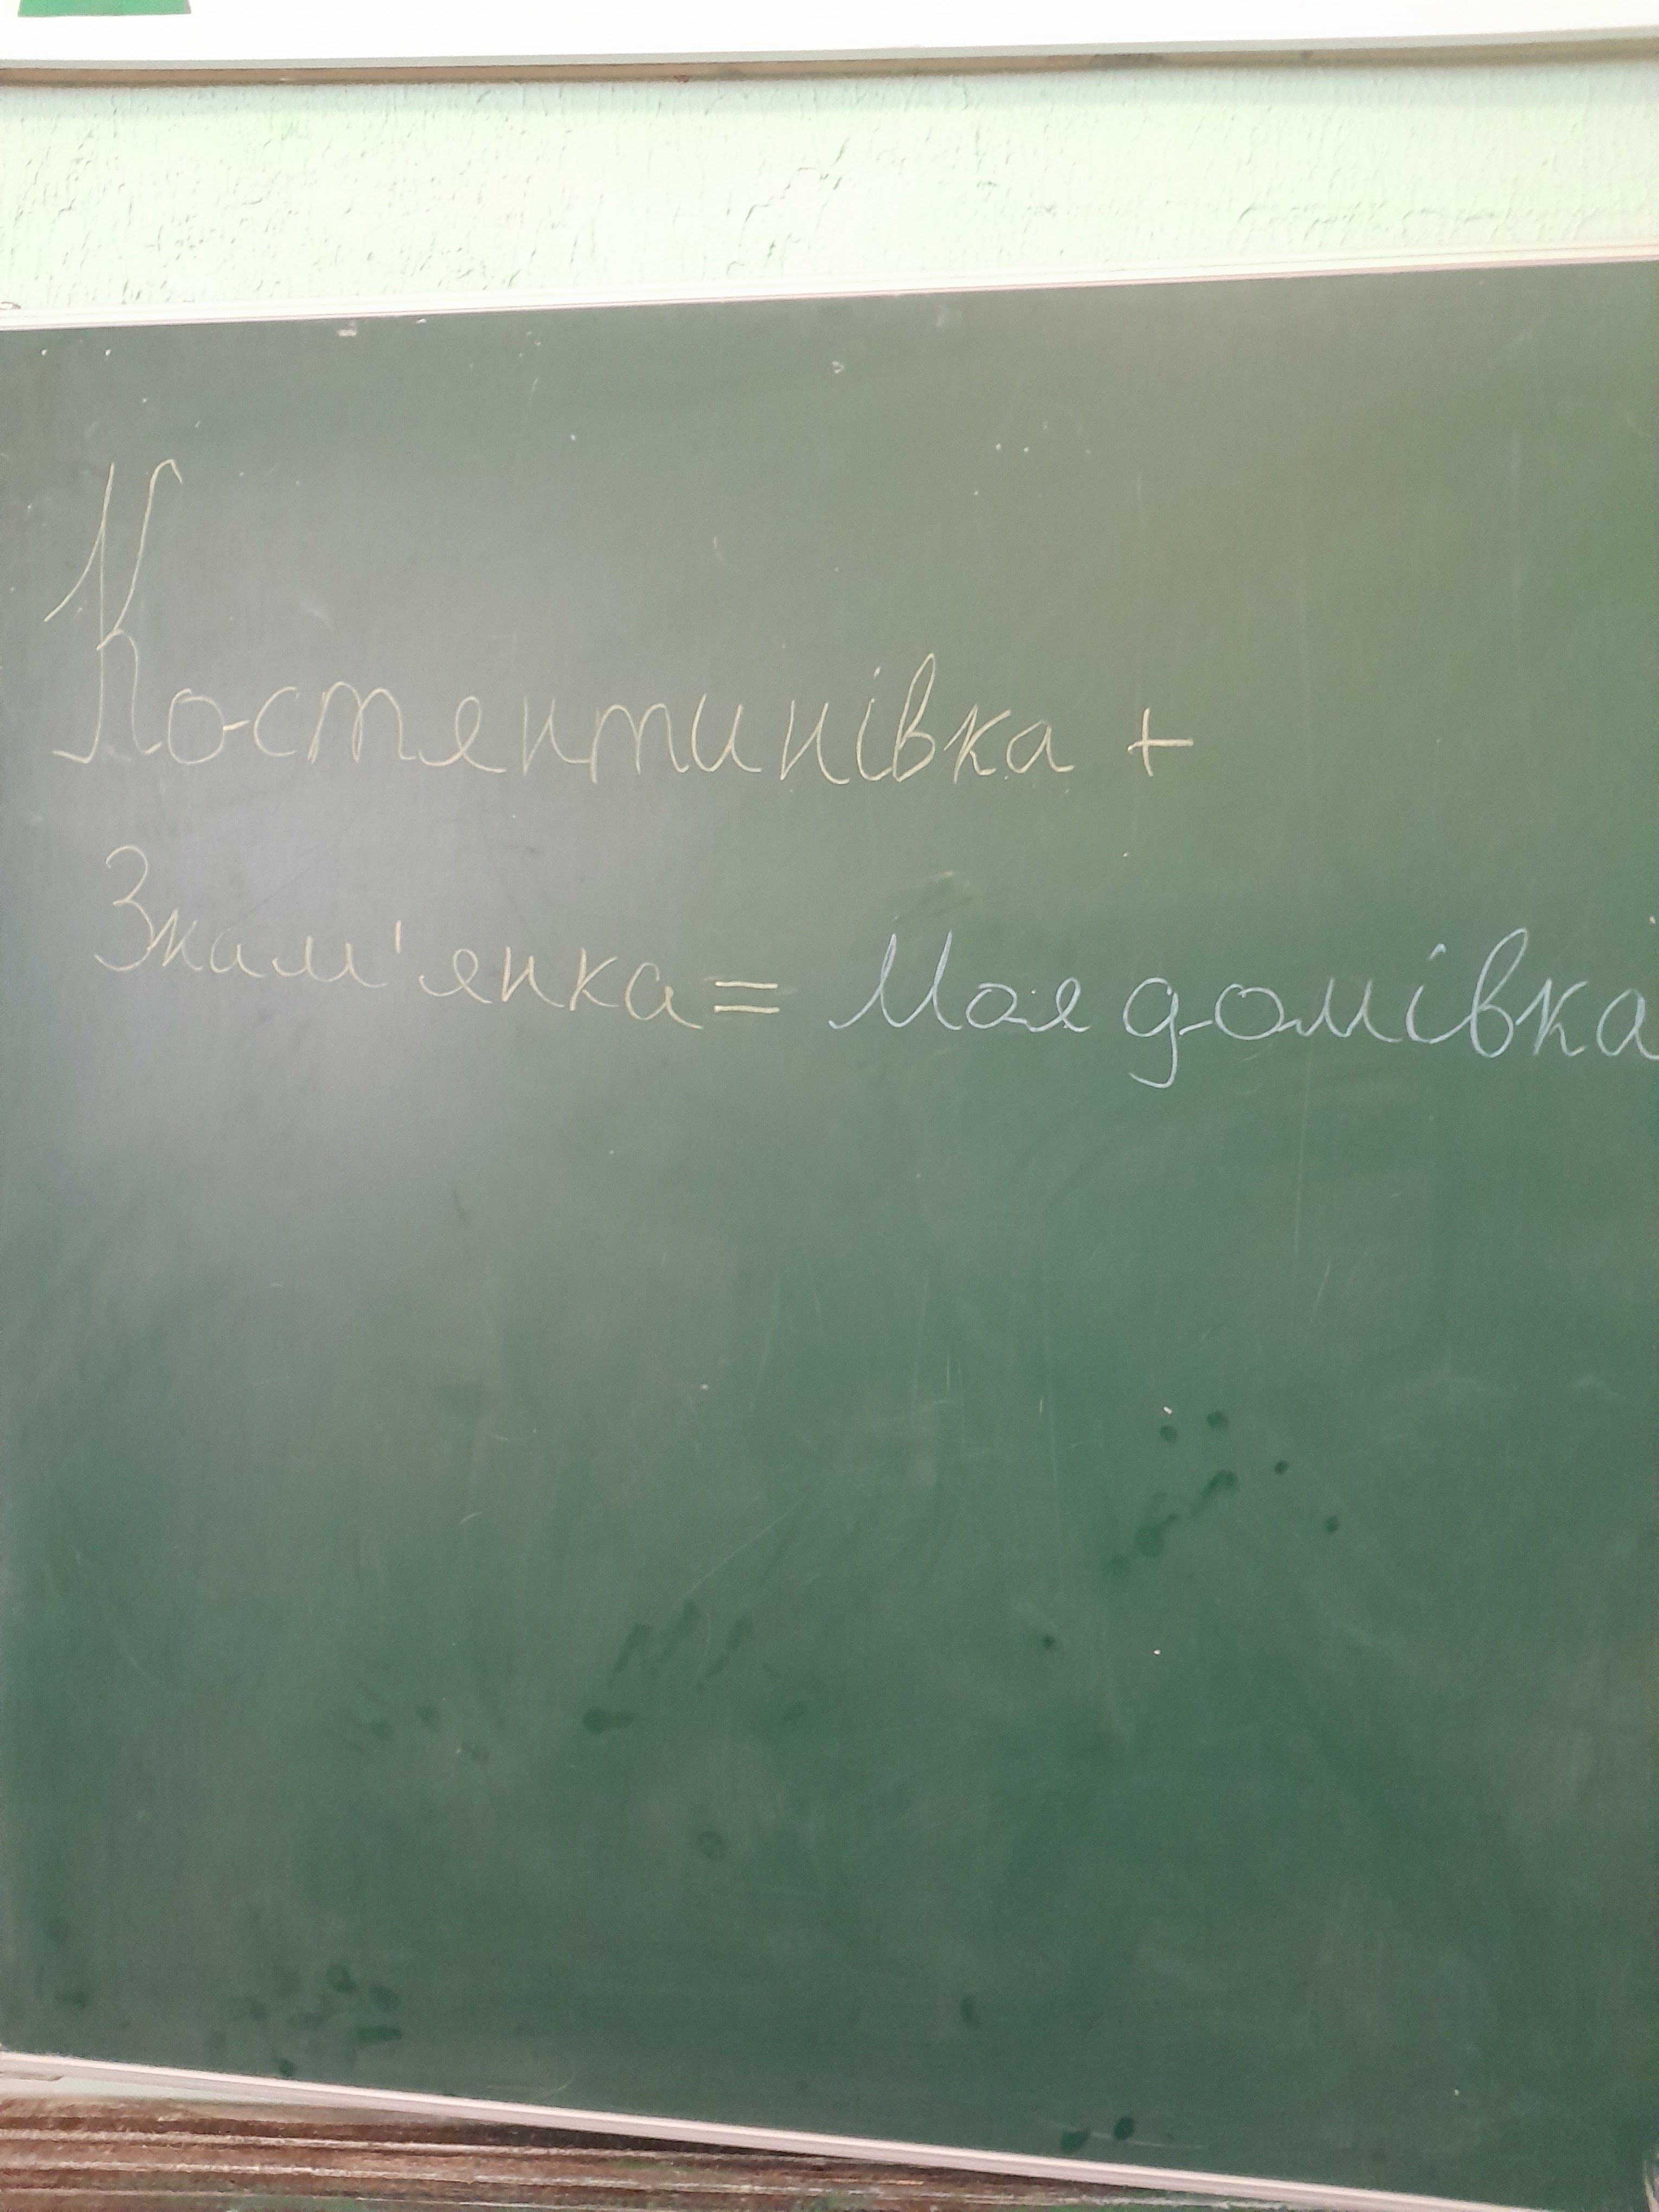 Костянтинівка +
Знам'янка = Моя домівка